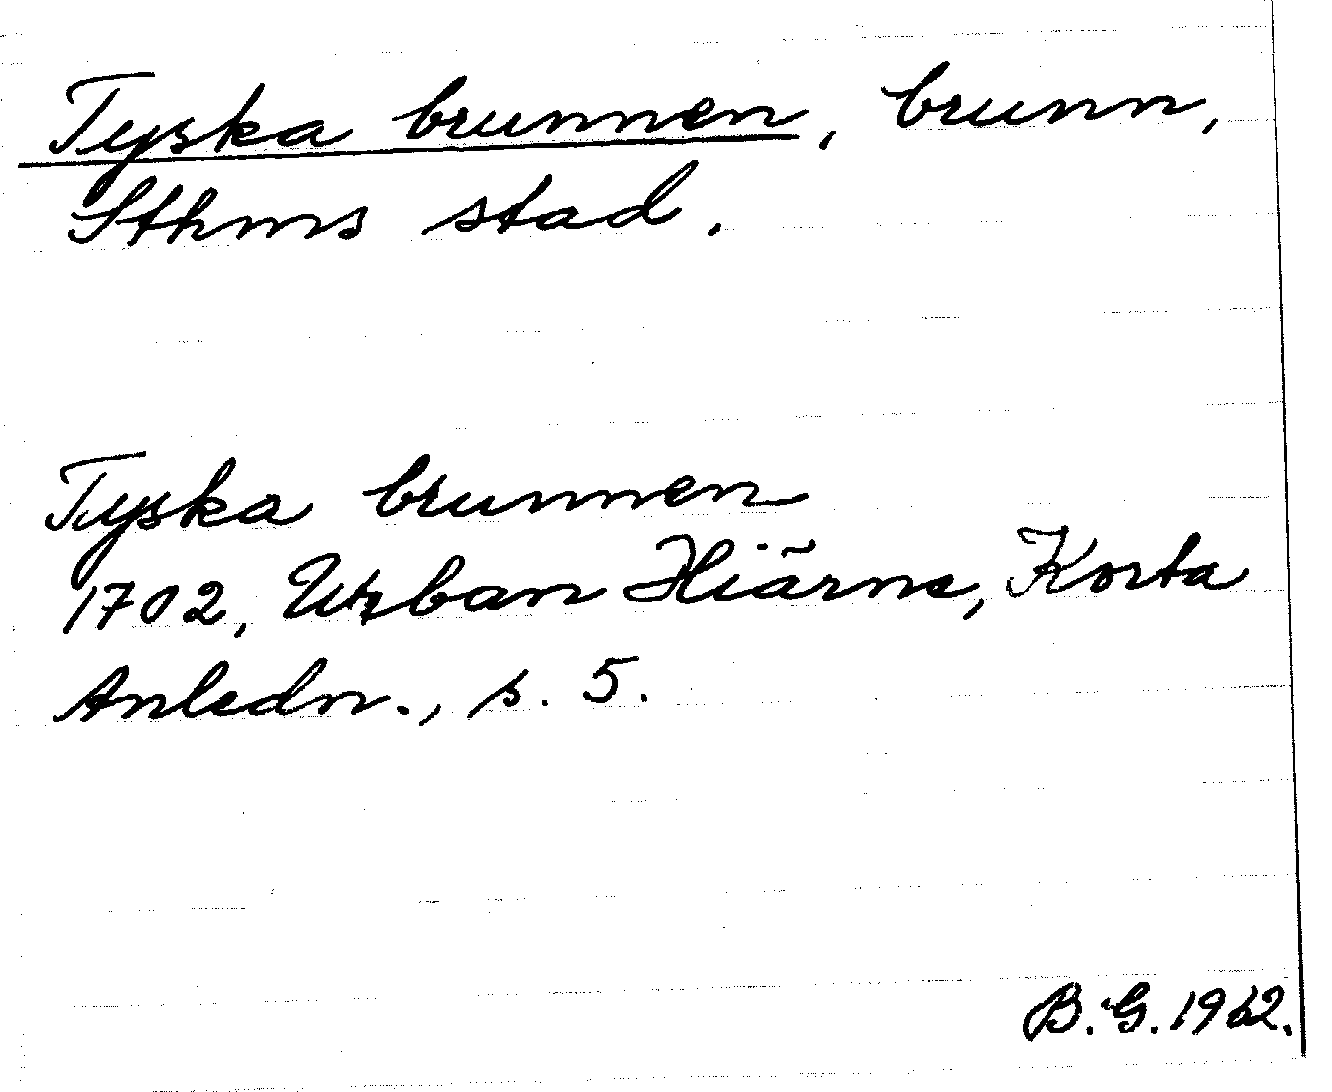 Tyska brunnen, brunn,
Sthms stad.
Tyska brunnen
1702, Urban Hiärne, Korta
Anledn., s. 5.
B.G. 1962.